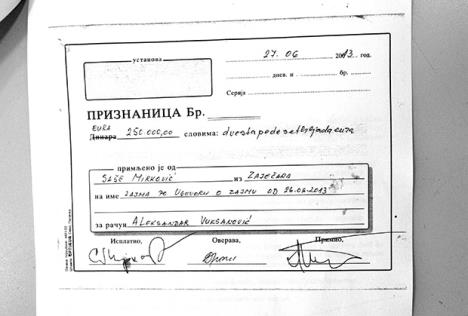 установа
27. 06 2013. год.
днев. и бр.
Серија
ПРИЗНАНИЦА Бр.
EURA
Динара 250 000,00 словима: dvestapedesethiljada eura
примљено је од
SAŠE MIRKOVIĆ из ZAJEČARA
на име ZAJMA PO UGOVORU O ZAJMU OD 26.06.2013
за рачун ALEKSANDAR VUKSANOVIĆ
Исплатио, Оверава, Примио,